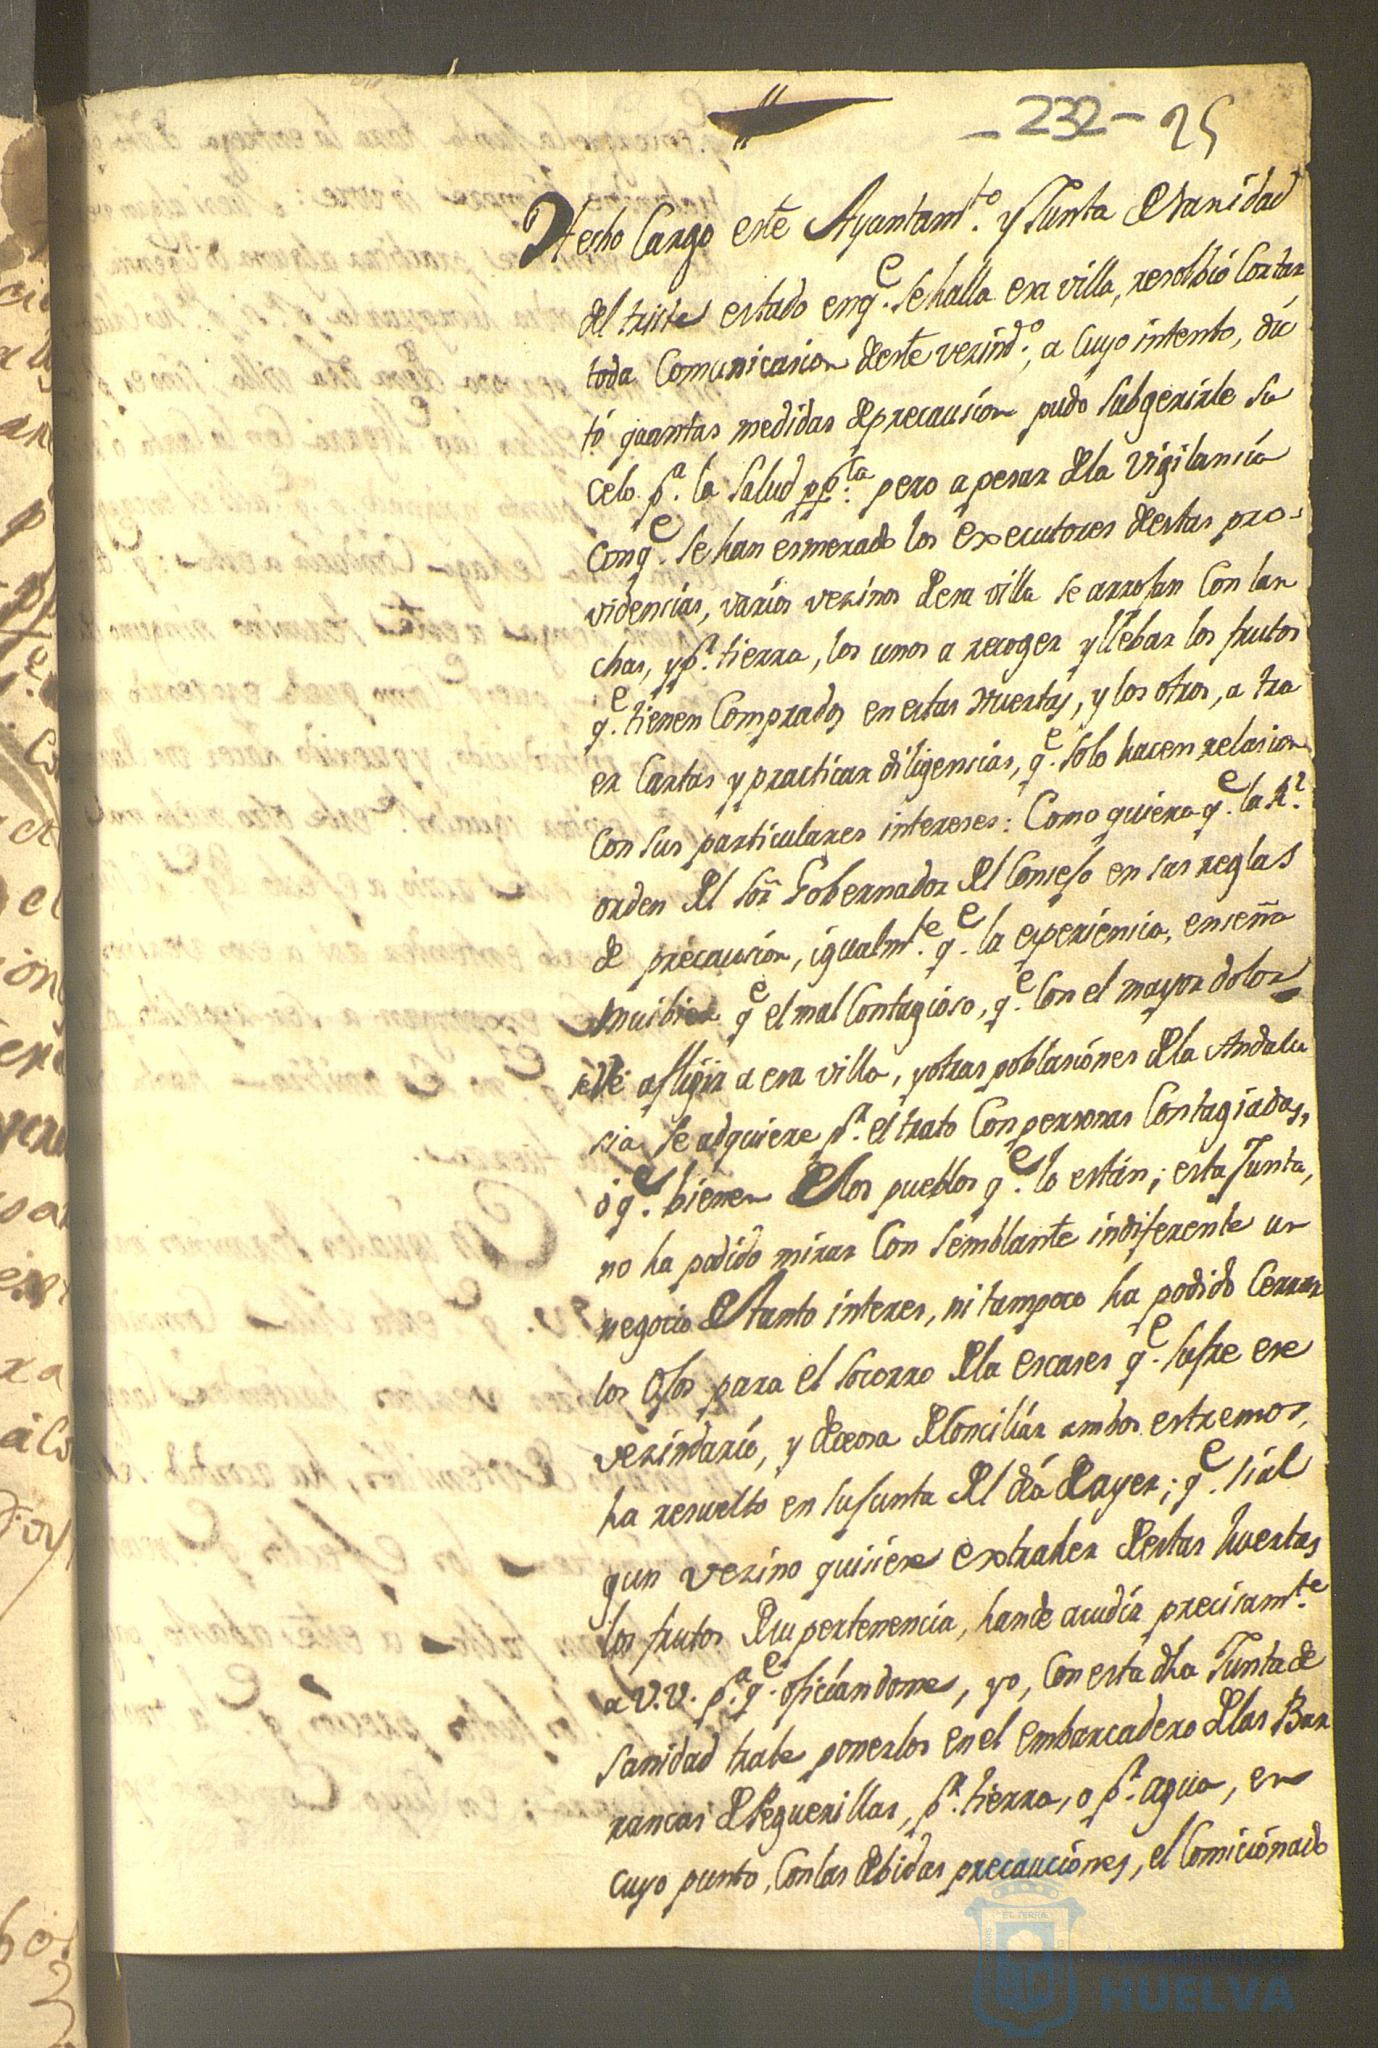 - 232 - 25
Hecho Cargo este Ayuntamto. y Junta de sanidad
del triste estado enqe. se halla esa villa, resolbió Cortar
toda Comunicacion deeste vezindo., a Cuyo intento, dic
tó quantas medidas deprecausion pudo Subgerirle su
celo pa. la Salud ppca. pero apesar dela vigilancia
conqe. se han esmerado los executores destas pro-
videncias, varios vezinos desa villa se arrojan con lan
chas, ypr. tierra, los unos a recoger yllebar los frutos
qe. tienen Comprados en estas Huertas, y los otros, a tra
er Cartas y practicar diligencias, qe. solo hacen relasion
con sus particulares intereses: Como quiera qe. la Rl.
orden del Sor. Gobernador del Consejo en sus reglas
de precausion, igualmte. qe. la experiencia, enseña
mui bien qe el mal Contagioso, qe. Con el mayor dolor
afligir a esa villa, yotras poblasiones dela Andalu
sia se adquiere pr. el trato Con personas Contagiadas,
ó qe. bienen delos pueblos qe. lo están; esta Junta,
no ha podido mirar Con semblante indiferente un
negocio detanto interes, ni tampoco ha podido Cerrar
los ojos para el socorro dela escases qe. sufre ese
vezindario, y deseosa deConciliar ambos estremos,
ha resuelto en suJunta del día deayer; qe. si al
gun vezino quisiere extraher destas huertas
los frutos desu pertenencia, hande acudir precisamte.
a V.V. pa. qe. oficiandome, yo, con esta dha Junta de
sanidad trate ponerlos en el embarcadero delas Bar
rancas dePeguerillas, pr. tierra, o pr. agua, en
cuyo punto, Con las debidas precauciónes, el Comicionado
HUELVA